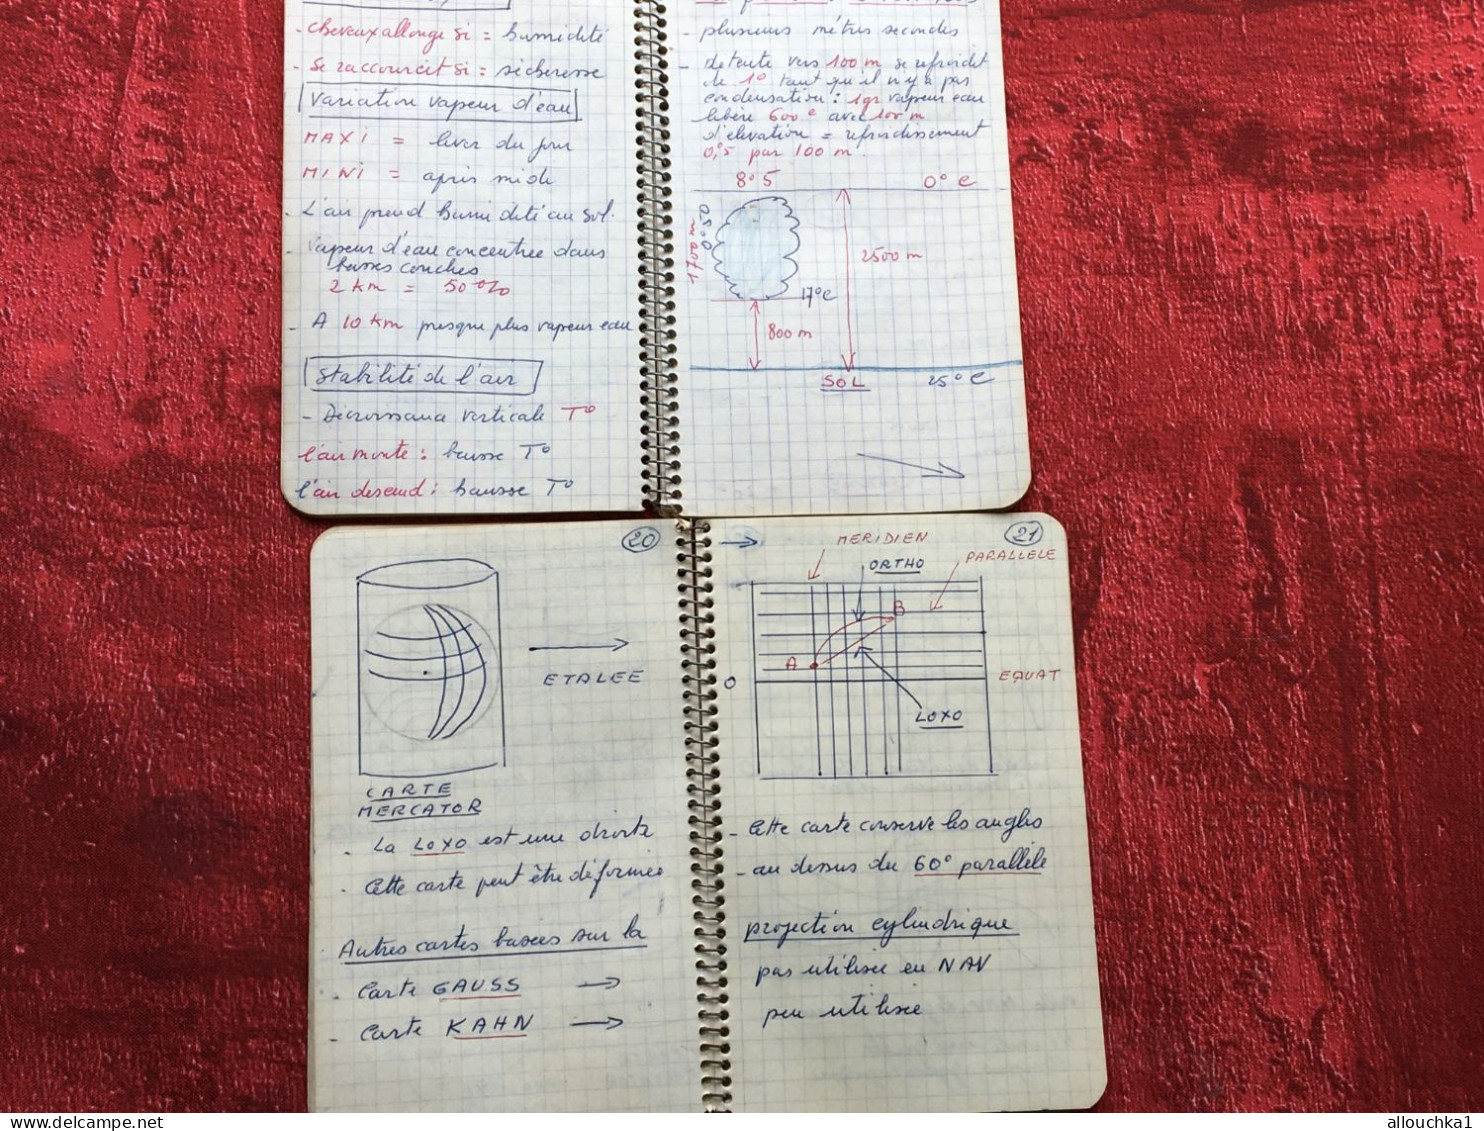 - cheveux allonge si = humidité
- Se raccourcit si = sécheresse
Variation vapeur d'eau
MAXI = lever du jour
MINI = après midi
- L'air prend humidité au sol.
- Vapeur d'eau concentrée dans
basses couches
2 km = 50 %
- A 10 km presque plus vapeur eau
Stabilité de l'air
- Décroissance verticale T°
l'air monte : baisse T°
l'air descend : hausse T°
- plusieurs mètres secondes
- detente vers 100 m se refroidit
de 1° tant qu'il n'y a pas
condensation : 1gr vapeur eau
libère 600 c avec 100 m
d'élévation = refroidissement
0,°5 par 100 m.
8°5
0°C
1700 m
0°50
2500 m
17°C
800 m
SOL
25°C
20
ETALEE
CARTE
MERCATOR
- La LOXO est une droite
- Cette carte peut être déformée
Autres cartes basées sur la
- Carte GAUSS →
- Carte KAHN →
21
MERIDIEN
ORTHO
PARALLELE
B
A
O
EQUAT
LOXO
- Cette carte conserve les angles
- au dessus du 60° parallèle
projection cylindrique
pas utilisée en NAV
peu utilisée
allouchka1